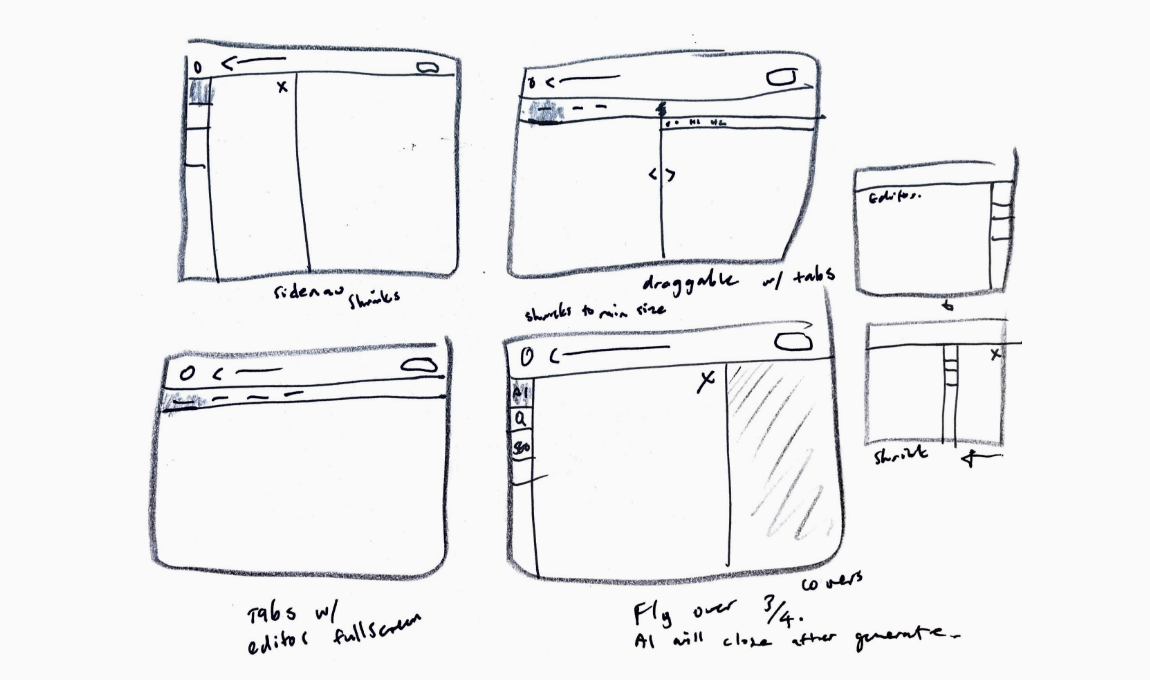 X
sidenav shrinks
< >
draggable w/ tabs
shrinks to min size
Editor.
X
shrink
Tabs w/
editor fullscreen
X
AI
Q
SEO
covers
Fly over 3/4.
AI will close after generate.